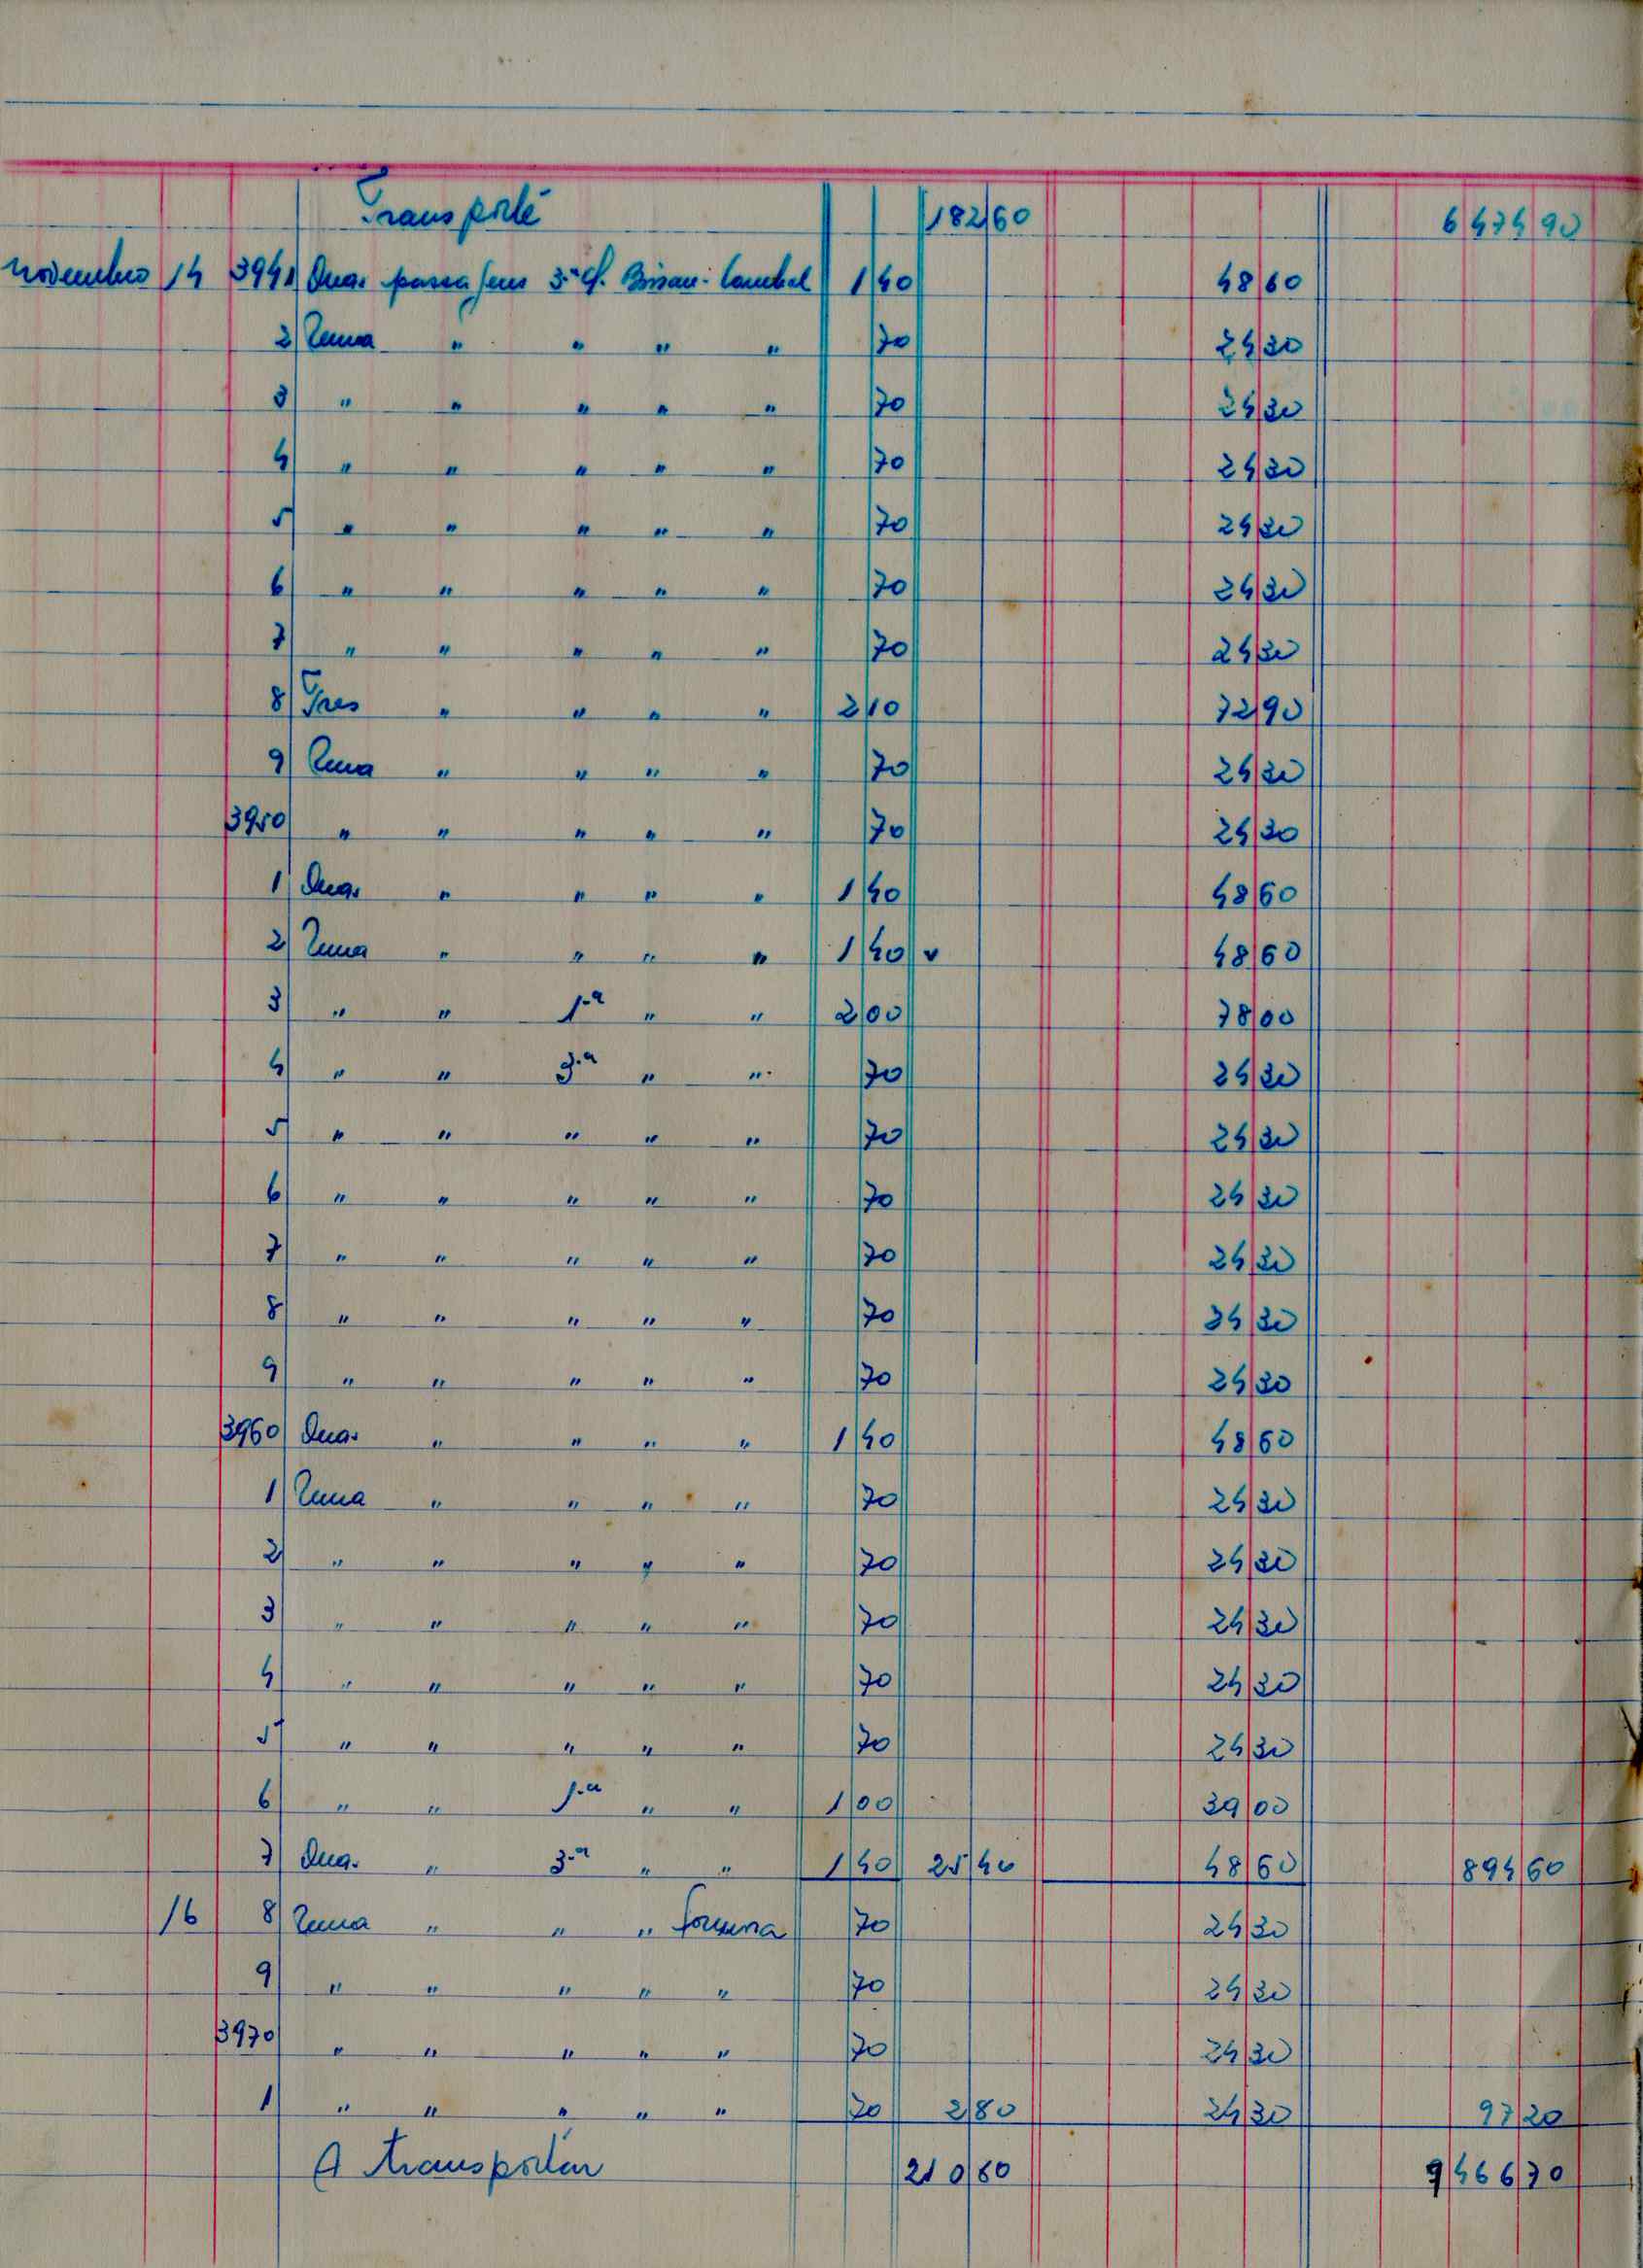 Transporte 182 60 6 474 90
Novembro 14 3941 Duas passagens 3.ª cl. Bissau- 1 40 48 60
2 Uma " " " " 70 24 30
3 " " " " " 70 24 30
4 " " " " " 70 24 30
5 " " " " " 70 24 30
6 " " " " " 70 24 30
7 " " " " " 70 24 30
8 Tres " " " " 2 10 72 90
9 Uma " " " " 70 24 30
3950 " " " " " 70 24 30
1 Duas " " " " 1 40 48 60
2 Uma " " " " 1 40 v 48 60
3 " " 1.ª " " 2 00 78 00
4 " " 3.ª " " 70 24 30
5 " " " " " 70 24 30
6 " " " " " 70 24 30
7 " " " " " 70 24 30
8 " " " " " 70 24 30
9 " " " " " 70 24 30
3960 Duas " " " " 1 40 48 60
1 Uma " " " " 70 24 30
2 " " " " " 70 24 30
3 " " " " " 70 24 30
4 " " " " " 70 24 30
5 " " " " " 70 24 30
6 " " 1.ª " " 1 00 39 00
7 Duas " 3.ª " " 1 40 25 40 48 60 894 60
16 8 Uma " " " 70 24 30
9 " " " " " 70 24 30
3970 " " " " " 70 24 30
1 " " " " " 70 2 80 24 30 97 20
A transportar 210 80 7 466 70